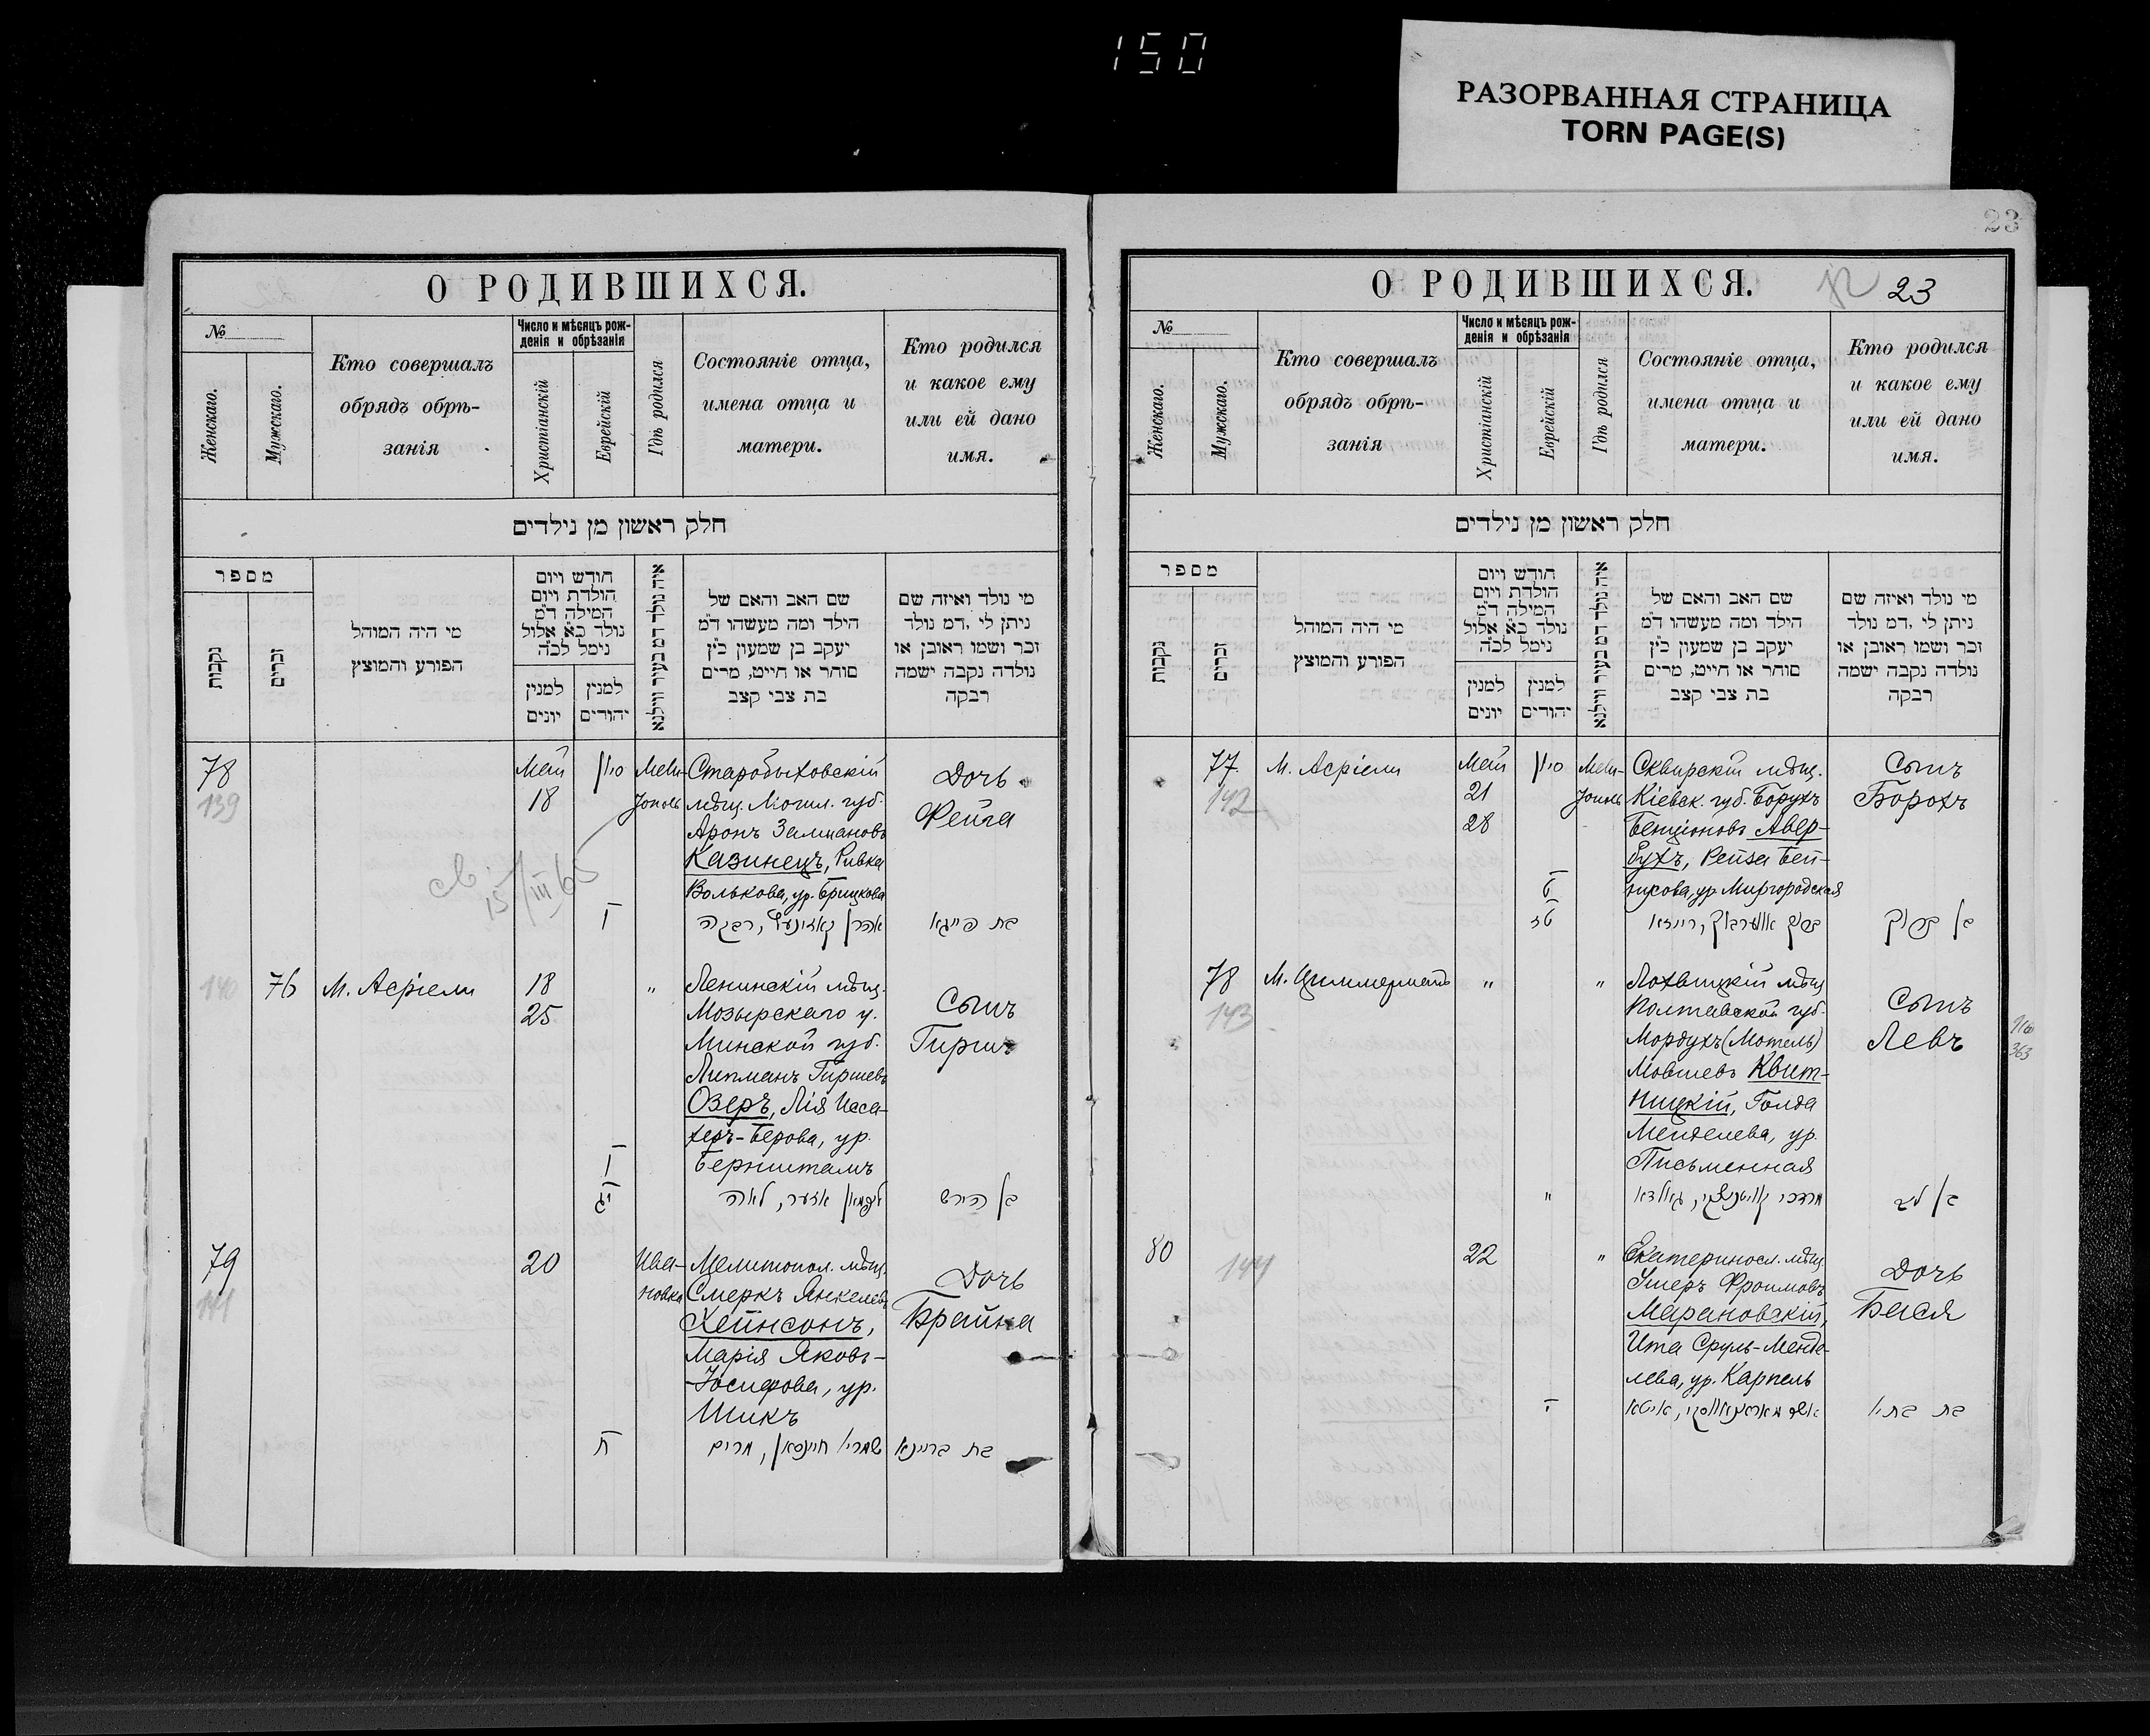 150
РАЗОРВАННАЯ СТРАНИЦА
TORN PAGE(S)
О РОДИВШИХСЯ.
№
Женскаго.
Мужскаго.
Кто совершалъ
обрядъ обрѣ-
занія
Число и мѣсяцъ рож-
денія и обрѣзанія
Христіанскій
Еврейскій
Гдѣ родился
Состояніе отца,
имена отца и
матери.
Кто родился
и какое ему
или ей дано
имя.
חלק ראשון מן נילדים
מספר
נקבות
זכרים
מי היה המוהל
הפורע והמוצץ
חודש ויום
הולדת ויום
המילה ד״מ
נולד כ״א אלול
נימל לכ״ה
למנין
יונים
למנין
יהודים
איה נולד דמ בעיר ווילנא
שם האב והאם של
הילד ומה מעשהו ד״מ
יעקב בן שמעון כ״ץ
סוחר או חייט, מרים
בת צבי קצב
מי נולד ואיזה שם
ניתן לי, דמ נולד
זכר ושמו ראובן או
נולדה נקבה ישמה
רבקה
78
139
Май
18
סיון
Мели-
тополь
Старобыховскій
мѣщ. Могил. губ.
Аронъ Залмановъ
Казинецъ, Ривка
Волькова, ур. Брицкова
אהרן קאזינעץ, רבקה
ו
Дочь
Фейга
בת פייגא
15/III 65
140
76
М. Асріели
18
25
"
Ленинскій мѣщ.
Мозырскаго у.
Минской губ.
Липманъ Гиршевъ
Озеръ, Лія Исса-
херъ-Берова, ур.
Бернштамъ
ליפמאן אזער, לאה
ו
יג
Сынъ
Гиршъ
בן הירש
79
141
20
Ива-
новка
Мелитопол. мѣщ.
Смеркъ Янкелевъ
Хейнсонъ,
Марія Яковъ-
-Іосифова, ур.
Шикъ
שמריו חיינסאן, מרים
ח
Дочь
Брайна
בת בריינא
23
О РОДИВШИХСЯ.
23
№
Женскаго.
Мужскаго.
Кто совершалъ
обрядъ обрѣ-
занія
Число и мѣсяцъ рож-
денія и обрѣзанія
Христіанскій
Еврейскій
Гдѣ родился
Состояніе отца,
имена отца и
матери.
Кто родился
и какое ему
или ей дано
имя.
חלק ראשון מן נילדים
מספר
נקבות
זכרים
מי היה המוהל
הפורע והמוצץ
חודש ויום
הולדת ויום
המילה ד״מ
נולד כ״א אלול
נימל לכ״ה
למנין
יונים
למנין
יהודים
איה נולד דמ בעיר ווילנא
שם האב והאם של
הילד ומה מעשהו ד״מ
יעקב בן שמעון כ״ץ
סוחר או חייט, מרים
בת צבי קצב
מי נולד ואיזה שם
ניתן לי, דמ נולד
זכר ושמו ראובן או
נולדה נקבה ישמה
רבקה
77
142
М. Асріели
Май
21
28
סיון
ט
טז
Мели-
тополь
Сквирскій мѣщ.
Кіевск. губ. Борухъ
Бенціоновъ Авер-
бухъ, Рейза Бей-
нусова, ур. Миргородская
ברוך אווערבוך, רייזא
Сынъ
Борохъ
בן ברוך
78
143
М. Циммерманъ
"
"
"
Лохвицкій мѣщ.
Полтавской губ.
Мордухъ (Мотель)
Мовшевъ Квит-
ницкій, Голда
Менделева, ур.
Письменная
מרדכי קוויטניצקי, גאלדא
Сынъ
Левъ
בן לב
363
80
144
22
י
"
Екатериносл. мѣщ.
Ушеръ Фроимовъ
Марановскій,
Ита Сруль-Менде-
лева, ур. Карпель
אשר מאראנאווסקי, איטא
Дочь
Бася
בת בתיו